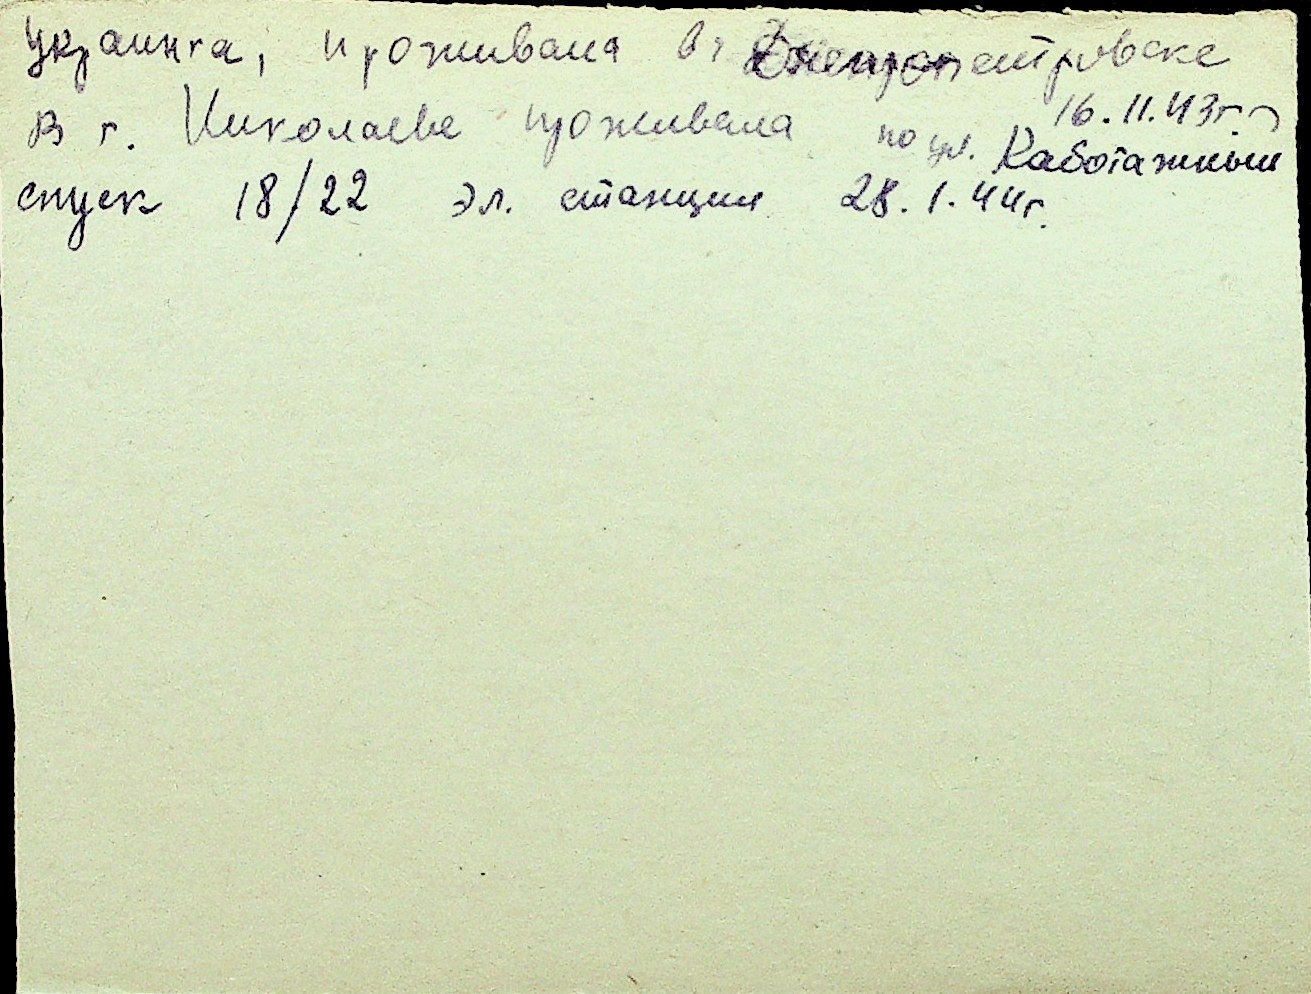 Украинка, проживала в г. Днепропетровске
16.11.43г.
В г. Николаеве проживала по ул. Каботажный
спуск 18/22 эл. станция 28.1.44г.